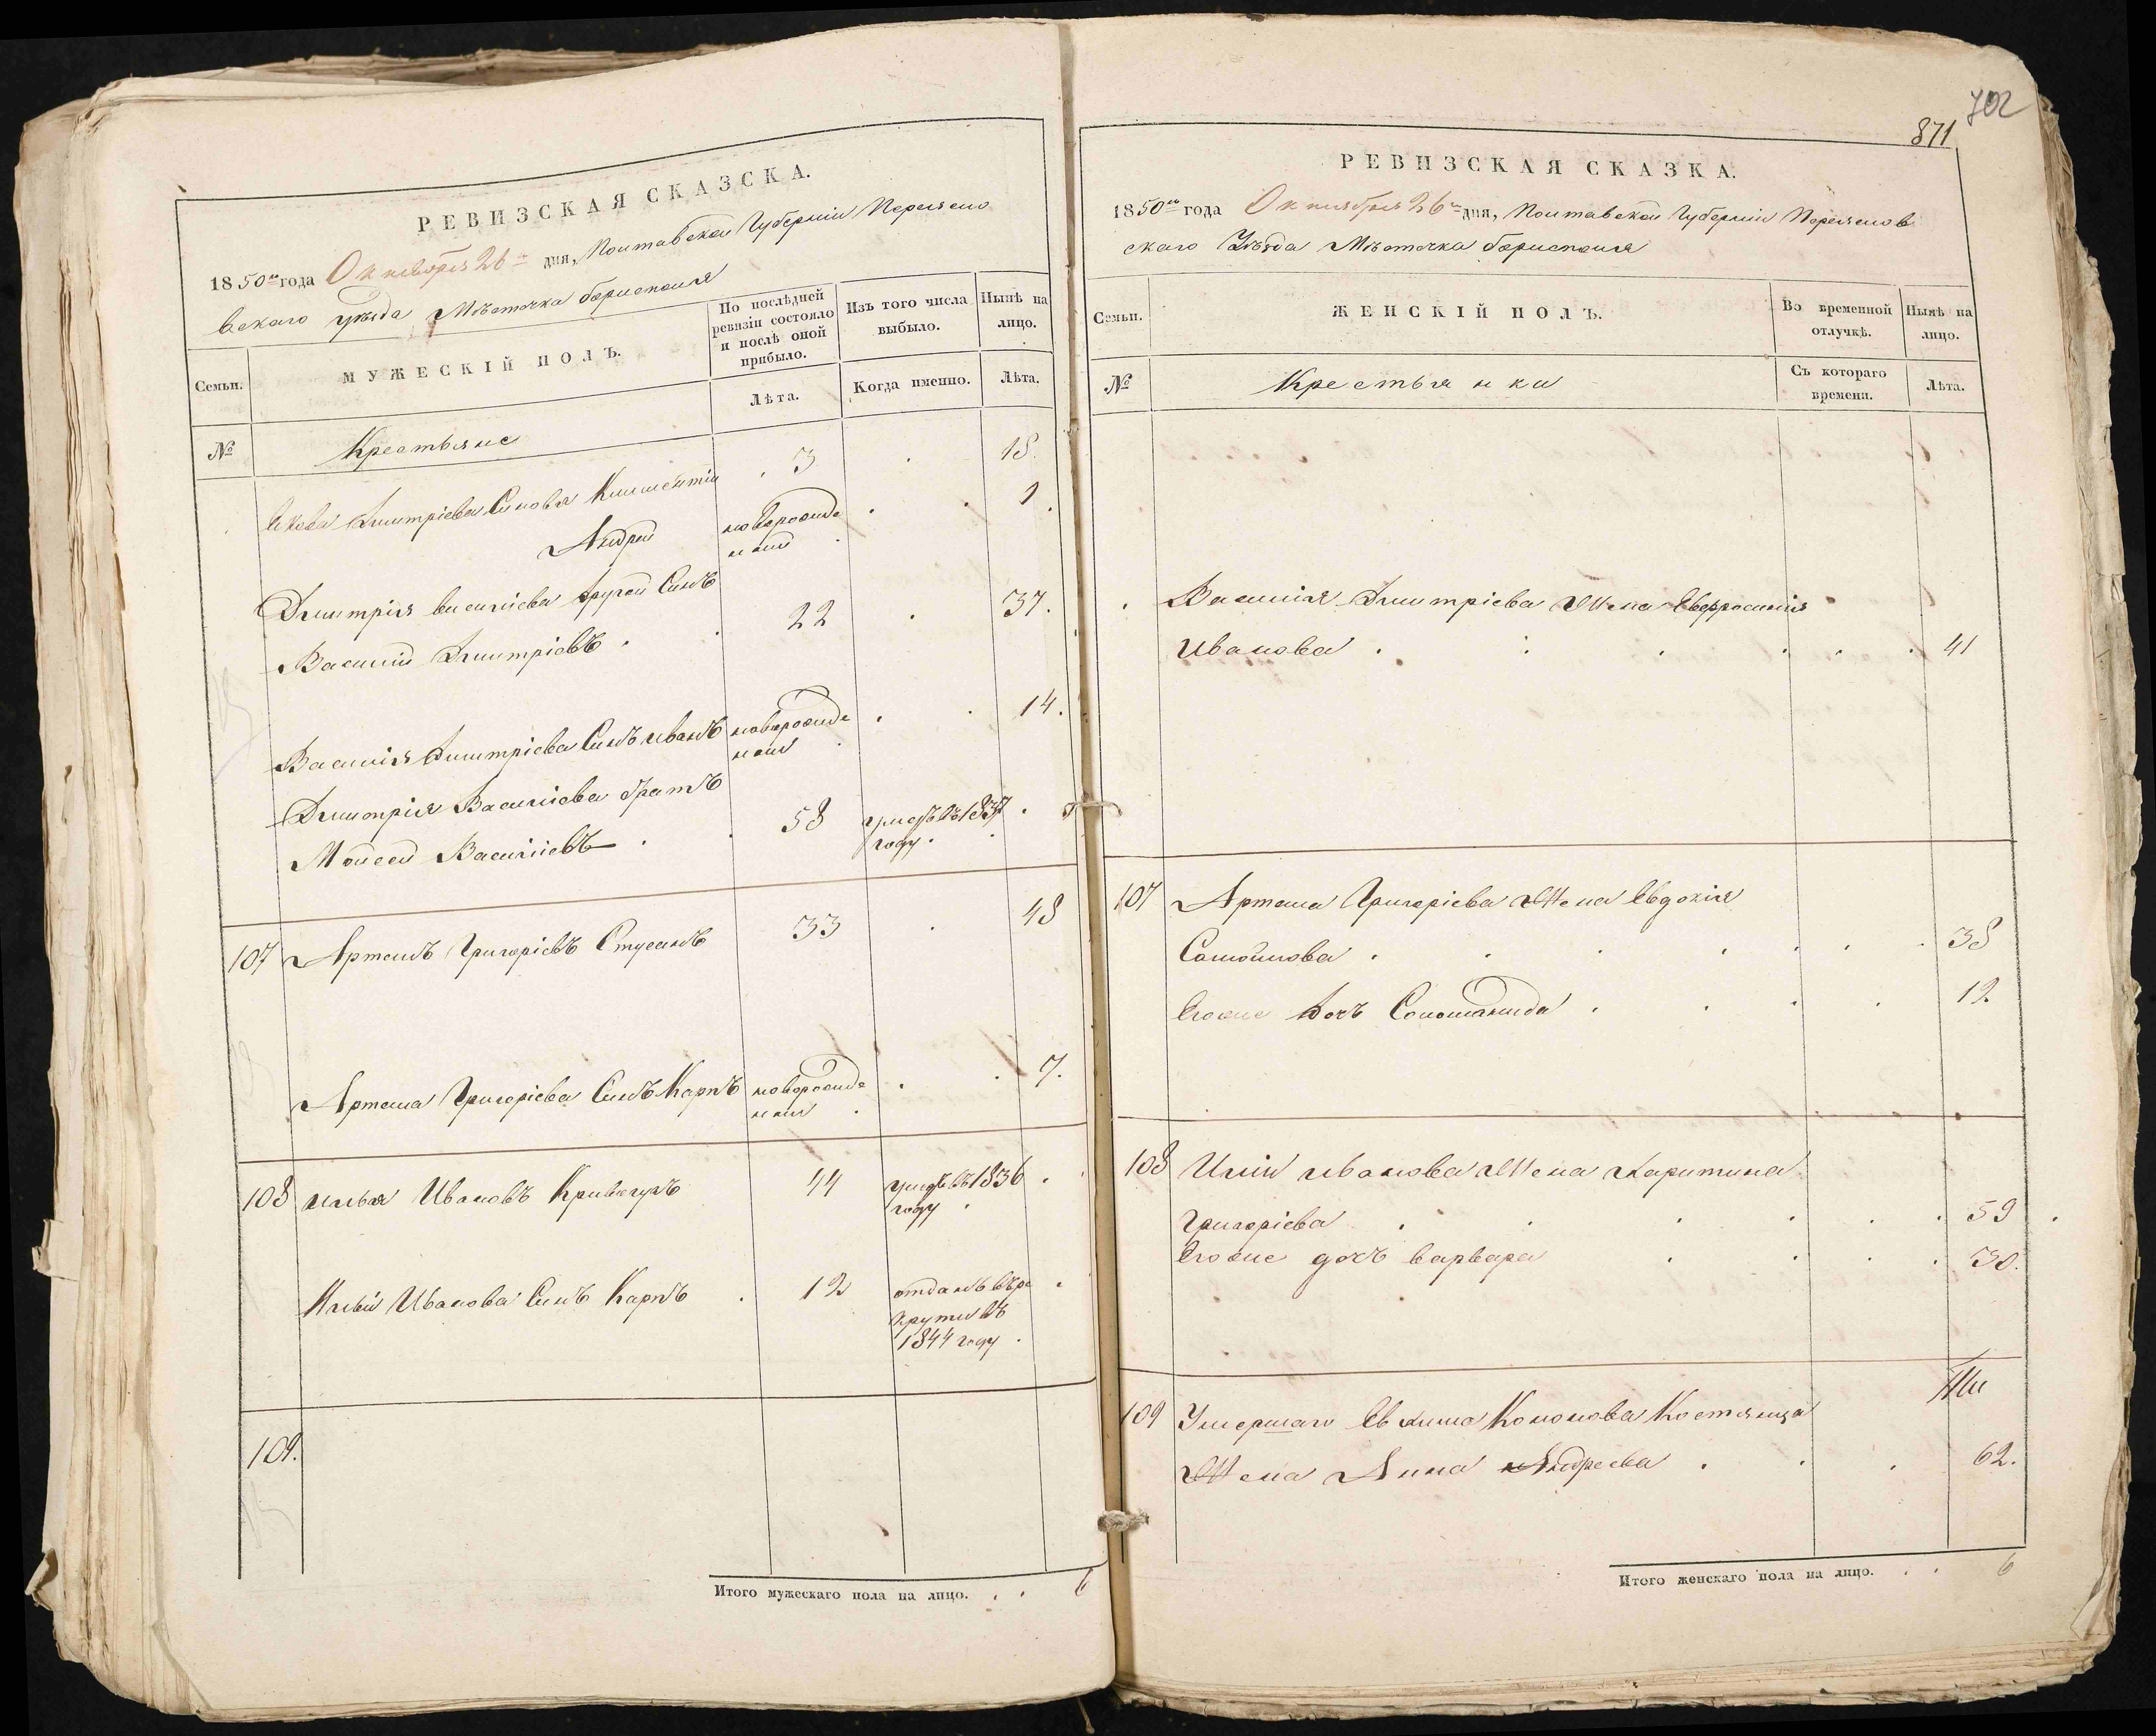 РЕВИЗСКАЯ СКАЗСКА.
1850го года Октября 26го дня, Полтавской Губерніи Переясло
вскаго уѣзда Мѣстечка борисполя
Семьи.
МУЖЕСКІЙ ПОЛЪ.
По послѣдней
ревизіи состояло
и послѣ оной
прибыло.
Изъ того числа
выбыло.
Нынѣ на
лицо.
Лѣта.
Когда именно.
Лѣта.
№
Крестьяне
Якова Дмитріева Синовья Климентій 3 18.
Андрей новорожде 1.
нний
Дмитрія василіева другой Синъ
Василій Дмитріевъ 22 37.
Василія Дмитріева Синъ иванъ новорожде 14.
ний
Дмитрія Василіева братъ
Мойсей Василіевъ 58 умеръ въ 1837
году
107 Артемъ Григоріевъ Стусанъ 33 48
Артема Григоріева Синъ Карпъ новорожде 7.
ний
108 илья Ивановъ 44 умеръ въ 1836
году
Ильи Иванова Синъ Карпъ 12 отданъ въ ре
круты въ
1844 году
109.
Итого мужескаго пола на лицо. . . 6
702
871
РЕВИЗСКАЯ СКАЗКА.
1850го года Октября 26го дня, Полтавской Губерніи Переяслов
скаго Уѣзда Мѣстечка борисполя
Семьи.
ЖЕНСКІЙ ПОЛЪ.
Во временной
отлучкѣ.
Нынѣ на
лицо.
№
Крестьянки
Съ котораго
времени.
Лѣта.
Василія Дмитріева Жена Евфросинія
Иванова 41
107 Артема Григоріева Жена Евдокія
Самойлова 38
Егоже дочь Соломанида 12.
108 Иліи иванова Жена Харитина
Григоріева 59
Егоже дочь варвара 30.
109 Умершаго Евхима Кононова
Жена Анна Андреева 62.
Итого женскаго пола на лицо. . . 6